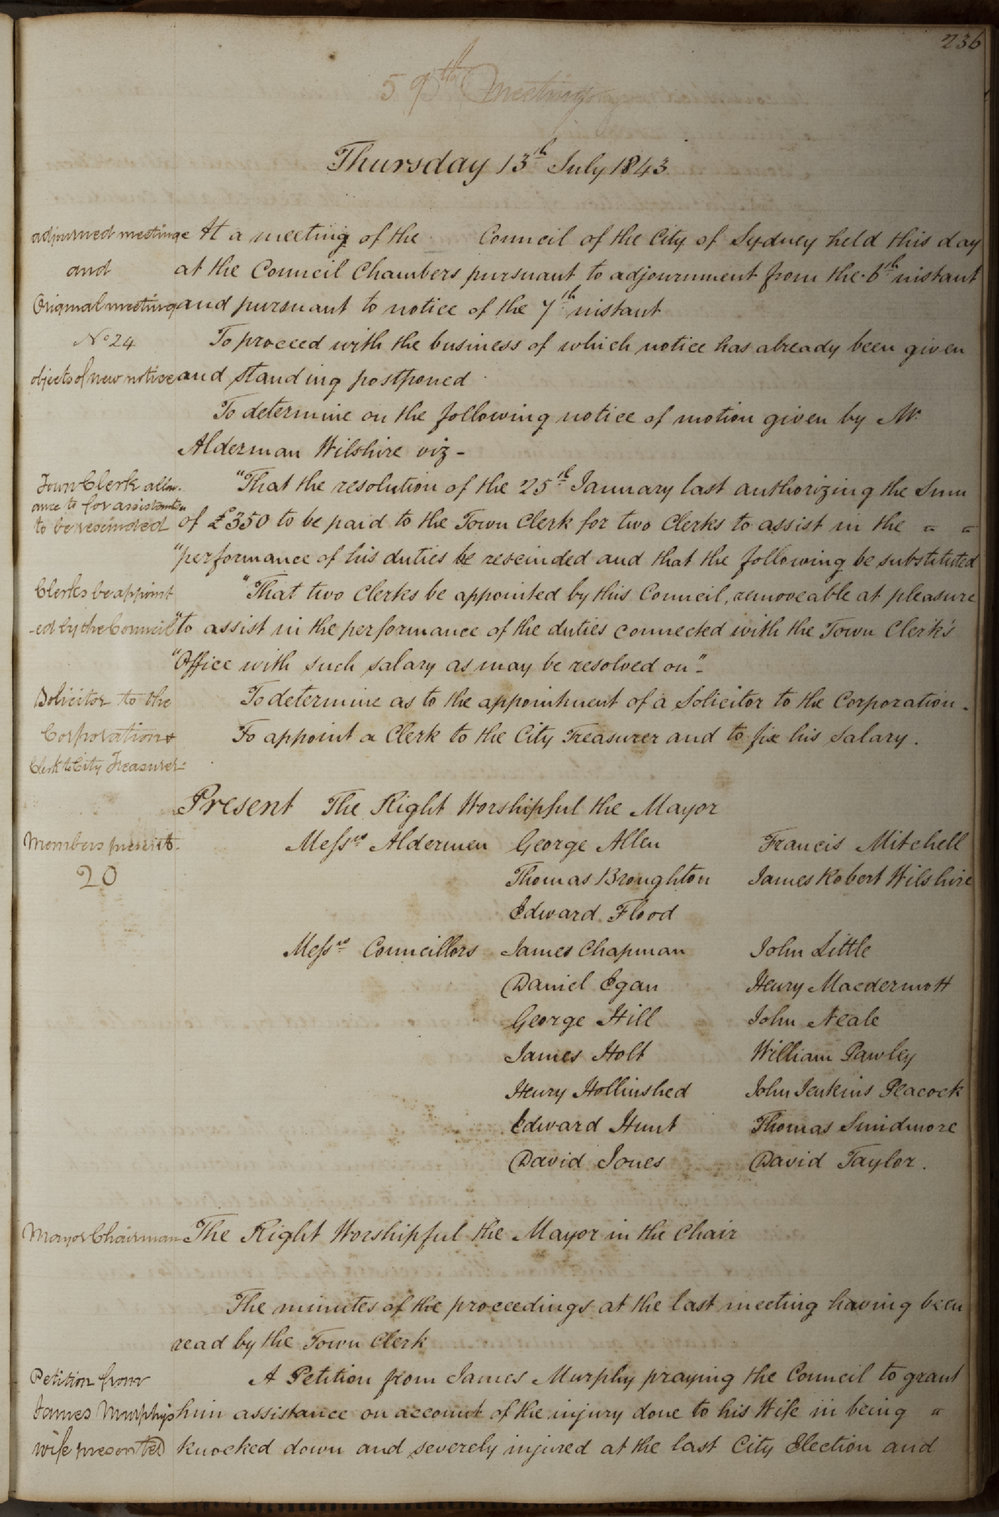 236
Meeting
Thursday 13th July 1843
adjourned meeting
and
Original meeting
No 24
objects of new notice
At a meeting of the Council of the City of Sydney held this day
at the Council Chambers pursuant to adjournment from the 6th instant
and pursuant to notice of the 7th instant
To proceed with the business of which notice has already been given
and standing postponed
To determine on the following notice of motion given by Mr
Alderman Wilshire viz -
Town Clerk allow-
ance to for assistants
to be rescinded
"That the resolution of the 25th January last authorizing the Sum
of £350 to be paid to the Town Clerk for two Clerks to assist in the " "
"performance of his duties be rescinded and that the following be substituted
Clerks be appoint
-ed by the Council
"That two Clerks be appointed by this Council, removeable at pleasure
"to assist in the performance of the duties connected with the Town Clerk's
"Office with such salary as may be resolved on"-
Solicitor to the
Corporation &
Clerk to City Treasurer
To determine as to the appointment of a Solicitor to the Corporation -
To appoint a Clerk to the City Treasurer and to fix his salary.
Present The Right Worshipful the Mayor
Members present
20
Messrs Aldermen George Allen Francis Mitchell
Thomas Broughton James Robert Wilshire
Edward Flood
Messrs Councillors James Chapman John Little
Daniel Egan Henry Macdermott
George Hill John Neale
James Holt William Pawley
Henry Hollinshed John Jenkins Peacock
Edward Hunt Thomas Smidmore
David Jones David Taylor.
Mayor Chairman
The Right Worshipful the Mayor in the Chair
The minutes of the proceedings at the last meeting having been
read by the Town Clerk
Petition from
James Murphys
wife presented
A Petition from James Murphy praying the Council to grant
him assistance on account of the injury done to his Wife in being "
knocked down and severely injured at the last City Election and